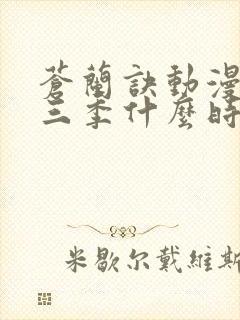 蒼蘭訣動漫
三季什麼時
米歇尔戴維斯